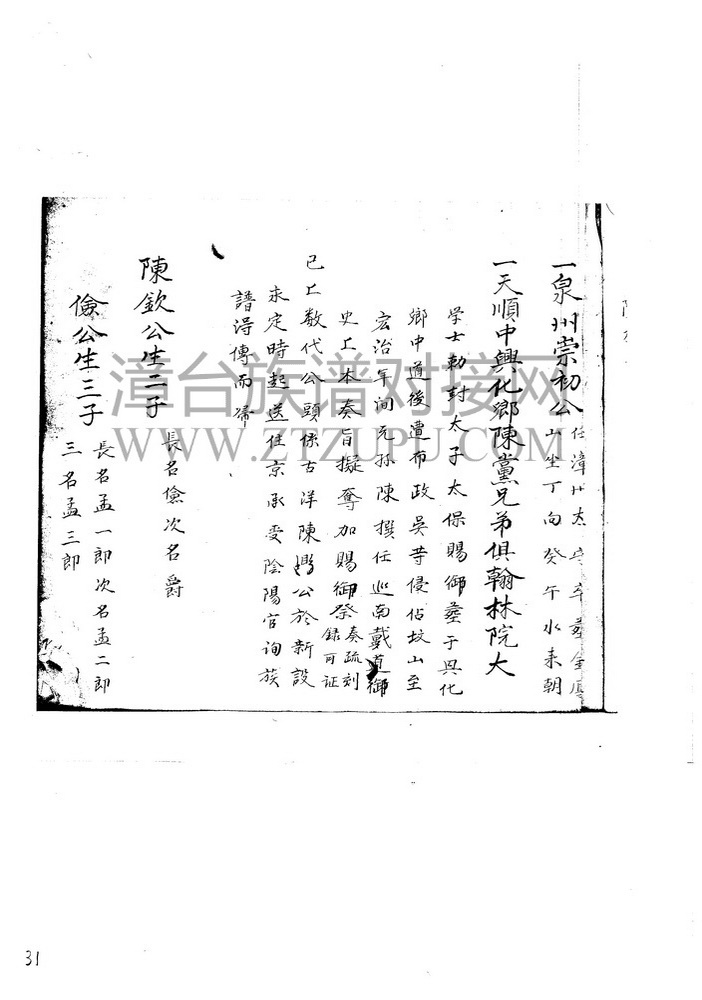 一泉州崇初公
任漳州太
山坐丁向癸午水来朝
一天順中興化鄉陳黨兄弟俱翰林院大
学士勅封太子太保賜御塟于興化
鄉中道後遭布政吳等侵佔坟山至
宏治年间元孫陳撰任巡南戴道御
史上本奏旨擬奪加賜御祭
奏疏刻
録可证
已上数代公頭係古洋陳公於新設
未定時起送住京承受陰陽官询族
譜淂傳而
陳欽公生二子
長名儉次名爵
儉公生三子
長名孟一郎次名孟二郎
三名孟三郎
漳台族谱对接网
WWW.ZTZUPU.COM
31